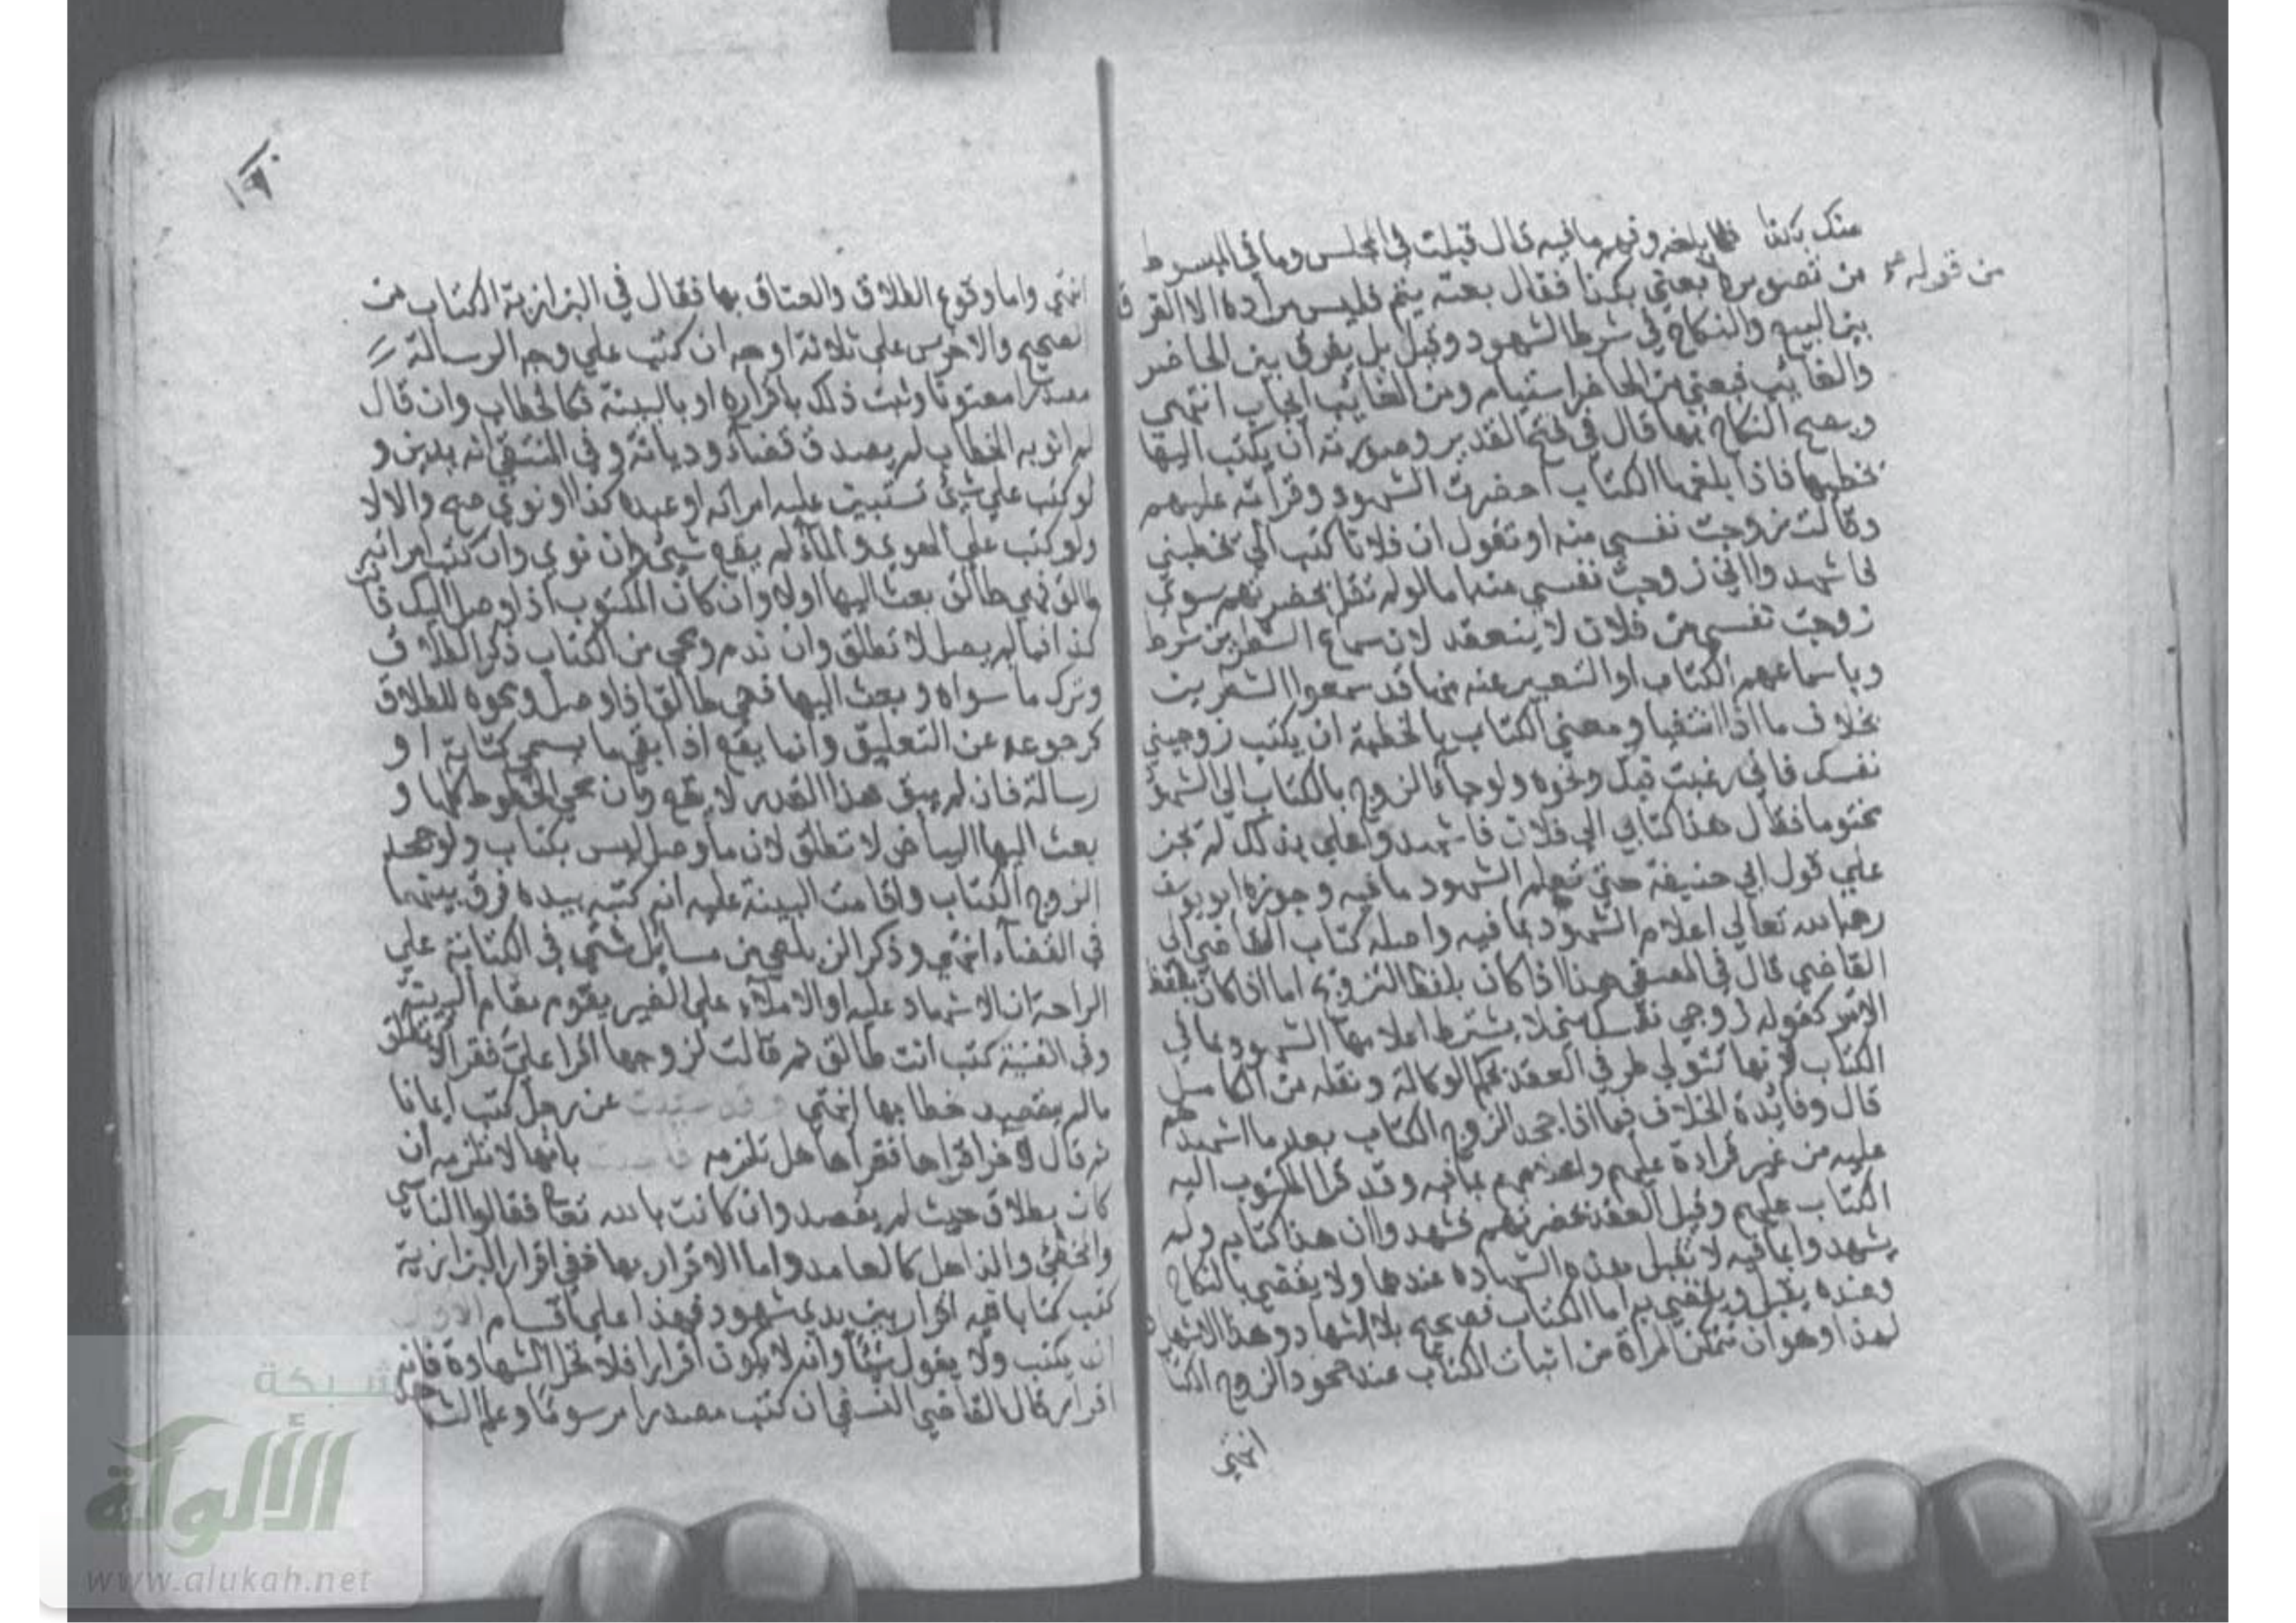 منك بكذا فلما بلغه وفهم ما فيه قال قبلت في المجلس وما في المبسوط
من قوله
من تصويره بعني بكذا فقال بعته يتم فليس مراده الا الفرق
بين البيع والنكاح في شرط الشهود وقيل بل يفرق بين الحاضر
والغائب فبعني من الحاضر استيام ومن الغائب ايجاب انتهي
ويصح النكاح بها قال في فتح القدير وصورته ان يكتب اليها
يخطبها فاذا بلغها الكتاب احضرت الشهود وقراته عليهم
وقالت زوجت نفسي منه او تقول ان فلانا كتب الي يخطبني
فاشهدوا اني زوجت نفسي منه اما لو لم تقل بحضرتهم سوي
زوجت نفسي من فلان لا ينعقد لان سماع الشطرين شرط
وباسماعهم الكتاب او التعبير عنه منها قد سمعوا الشطرين
بخلاف ما اذا انتفيا ومعني الكتاب بالخطبة ان يكتب زوجيني
نفسك فاني رغبت فيك ونحوه ولو جاء الزوج بالكتاب الي الشهود
مختوما فقال هذا كتابي الي فلان فاشهدوا علي بذلك لم تجز
علي قول ابي حنيفة حتي تعلم الشهود ما فيه وجوزه ابو يوسف
رحمه الله تعالي اعلام الشهود بما فيه واصله كتاب القاضي الي
القاضي قال في المصفي هذا اذا كان بلفظ التزوج اما اذا كان بلفظ
الامر كقوله زوجي نفسك مني لا يشترط اعلامها الشهود بما في
الكتاب لانها تتولي طرفي العقد بحكم الوكالة ونقله من الكامل
قال وفائدة الخلاف فيما اذا جحد الزوج الكتاب بعد ما اشهدهم
عليه من غير قراءة عليهم واعلامهم بما فيه وقد قرا المكتوب اليه
الكتاب عليهم وقبل العقد بحضرتهم فشهدوا ان هذا كتابه ولم
يشهدوا بما فيه لا تقبل هذه الشهادة عندهما ولا يقضي بالنكاح
وعنده يقبل ويقضي به اما الكتاب فصحيح بلا اشهاد وهذا الاشهاد
لهذا وهو ان تتمكن المراة من اثبات الكتاب عند جحود الزوج الكتاب
انتهي
انتهي واما وقوع الطلاق والعتاق بها فقال في البزازية الكتاب من
الصحيح والاخرس علي ثلاثة اوجه ان كتب علي وجه الرسالة
مصدرا معنونا وثبت ذلك باقراره او بالبينة فكالخطاب وان قال
لم انو به الخطاب لم يصدق قضاء وديانة وفي المنتقي انه يدين و
لو كتب علي شيئ تستبين عليه امراته او عبده كذا او نوي صح والا لا
ولو كتب علي الهوي والماء لم يقع شيئ وان نوي وان كتب امراته
طالق فهي طالق بعث اليها اولا وان كان المكتوب اذا وصل اليك فانت
كذا فما لم يصل لا تطلق وان ندم ومحي من الكتاب ذكر الطلاق
وترك ما سواه وبعث اليها فهي طالق اذا وصل ومحوه للطلاق
كرجوعه عن التعليق وانما يقع اذا بقي ما يسمي كتابة او
رسالة فان لم يبق هذا القدر لا يقع وان محي الخطوط كلها و
بعث اليها البياض لا تطلق لان ما وصل ليس بكتاب ولو جحد
الزوج الكتاب واقامت البينة عليه انه كتبه بيده فرق بينهما
في القضاء انتهي وذكر الزيلعي من مسائل شتي في الكتابة علي
الراحة ان الاشهاد عليه او الاملاء علي الغير يقوم مقام البينة
وفي القنية كتب انت طالق ثم قالت لزوجها اقرا علي فقرا لا تطلق
ما لم يقصد خطابها انتهي وقد سئلت عن رجل كتب ايمانا
ثم قال لاخر اقراها فقراها هل تلزمه فاجبت بانها لا تلزمه ان
كان بطلاق حيث لم يقصد وان كانت بالله تعالي فقالوا الناسي
والمخطئ والذاهل كالعامد واما الاقرار بها ففي اقرار البزازية
كتب كتابا فيه اقرار بين يدي شهود فهذا علي اقسام الاول
ان يكتب ولا يقول شيئا وانه لا يكون اقرارا فلا تحل الشهادة فانه
اقرار قال القاضي النسفي ان كتب مصدرا مرسوما وعلم الشاهد
شبكة
الألوكة
www.alukah.net